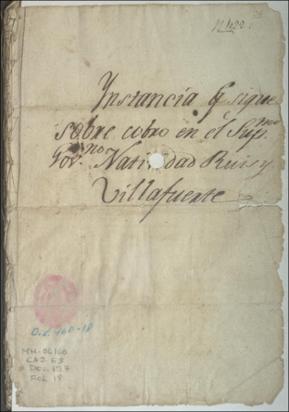 Instancia q sigue
sobre cobro en el Sup.mo
Gov.no Natividad Ruis y
Villafuente
O.L. 160-18
MH-OL160
CAJ. 53
DOC. 157
FOL 18